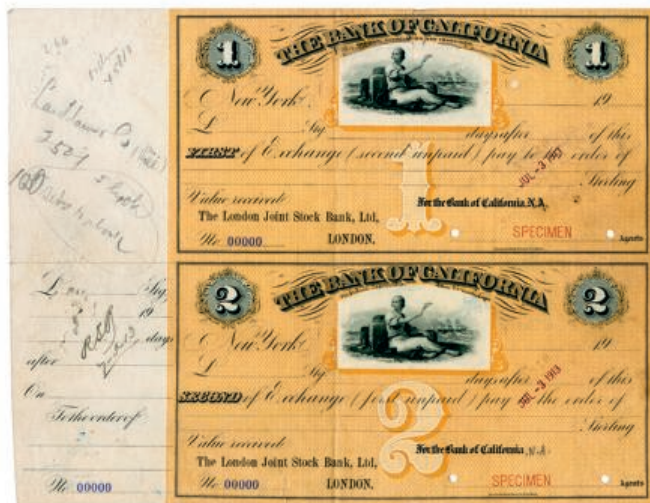 1 THE BANK OF CALIFORNIA 1
New York, 19
£ Stg. days after of this
FIRST of Exchange (second unpaid) pay to the order of
JUL -3 1913
Sterling
1
Value received
For the Bank of California, N.A.
The London Joint Stock Bank, Ltd,
No. 00000 LONDON.
SPECIMEN
Agents
2 THE BANK OF CALIFORNIA 2
New York, 19
£ Stg. days after of this
SECOND of Exchange (first unpaid) pay to the order of
JUL -3 1913
Sterling
2
Value received
For the Bank of California, N.A.
The London Joint Stock Bank, Ltd,
No. 00000 LONDON.
SPECIMEN
Agents
£ Stg.
19
days
after
On
To the order of
No. 00000